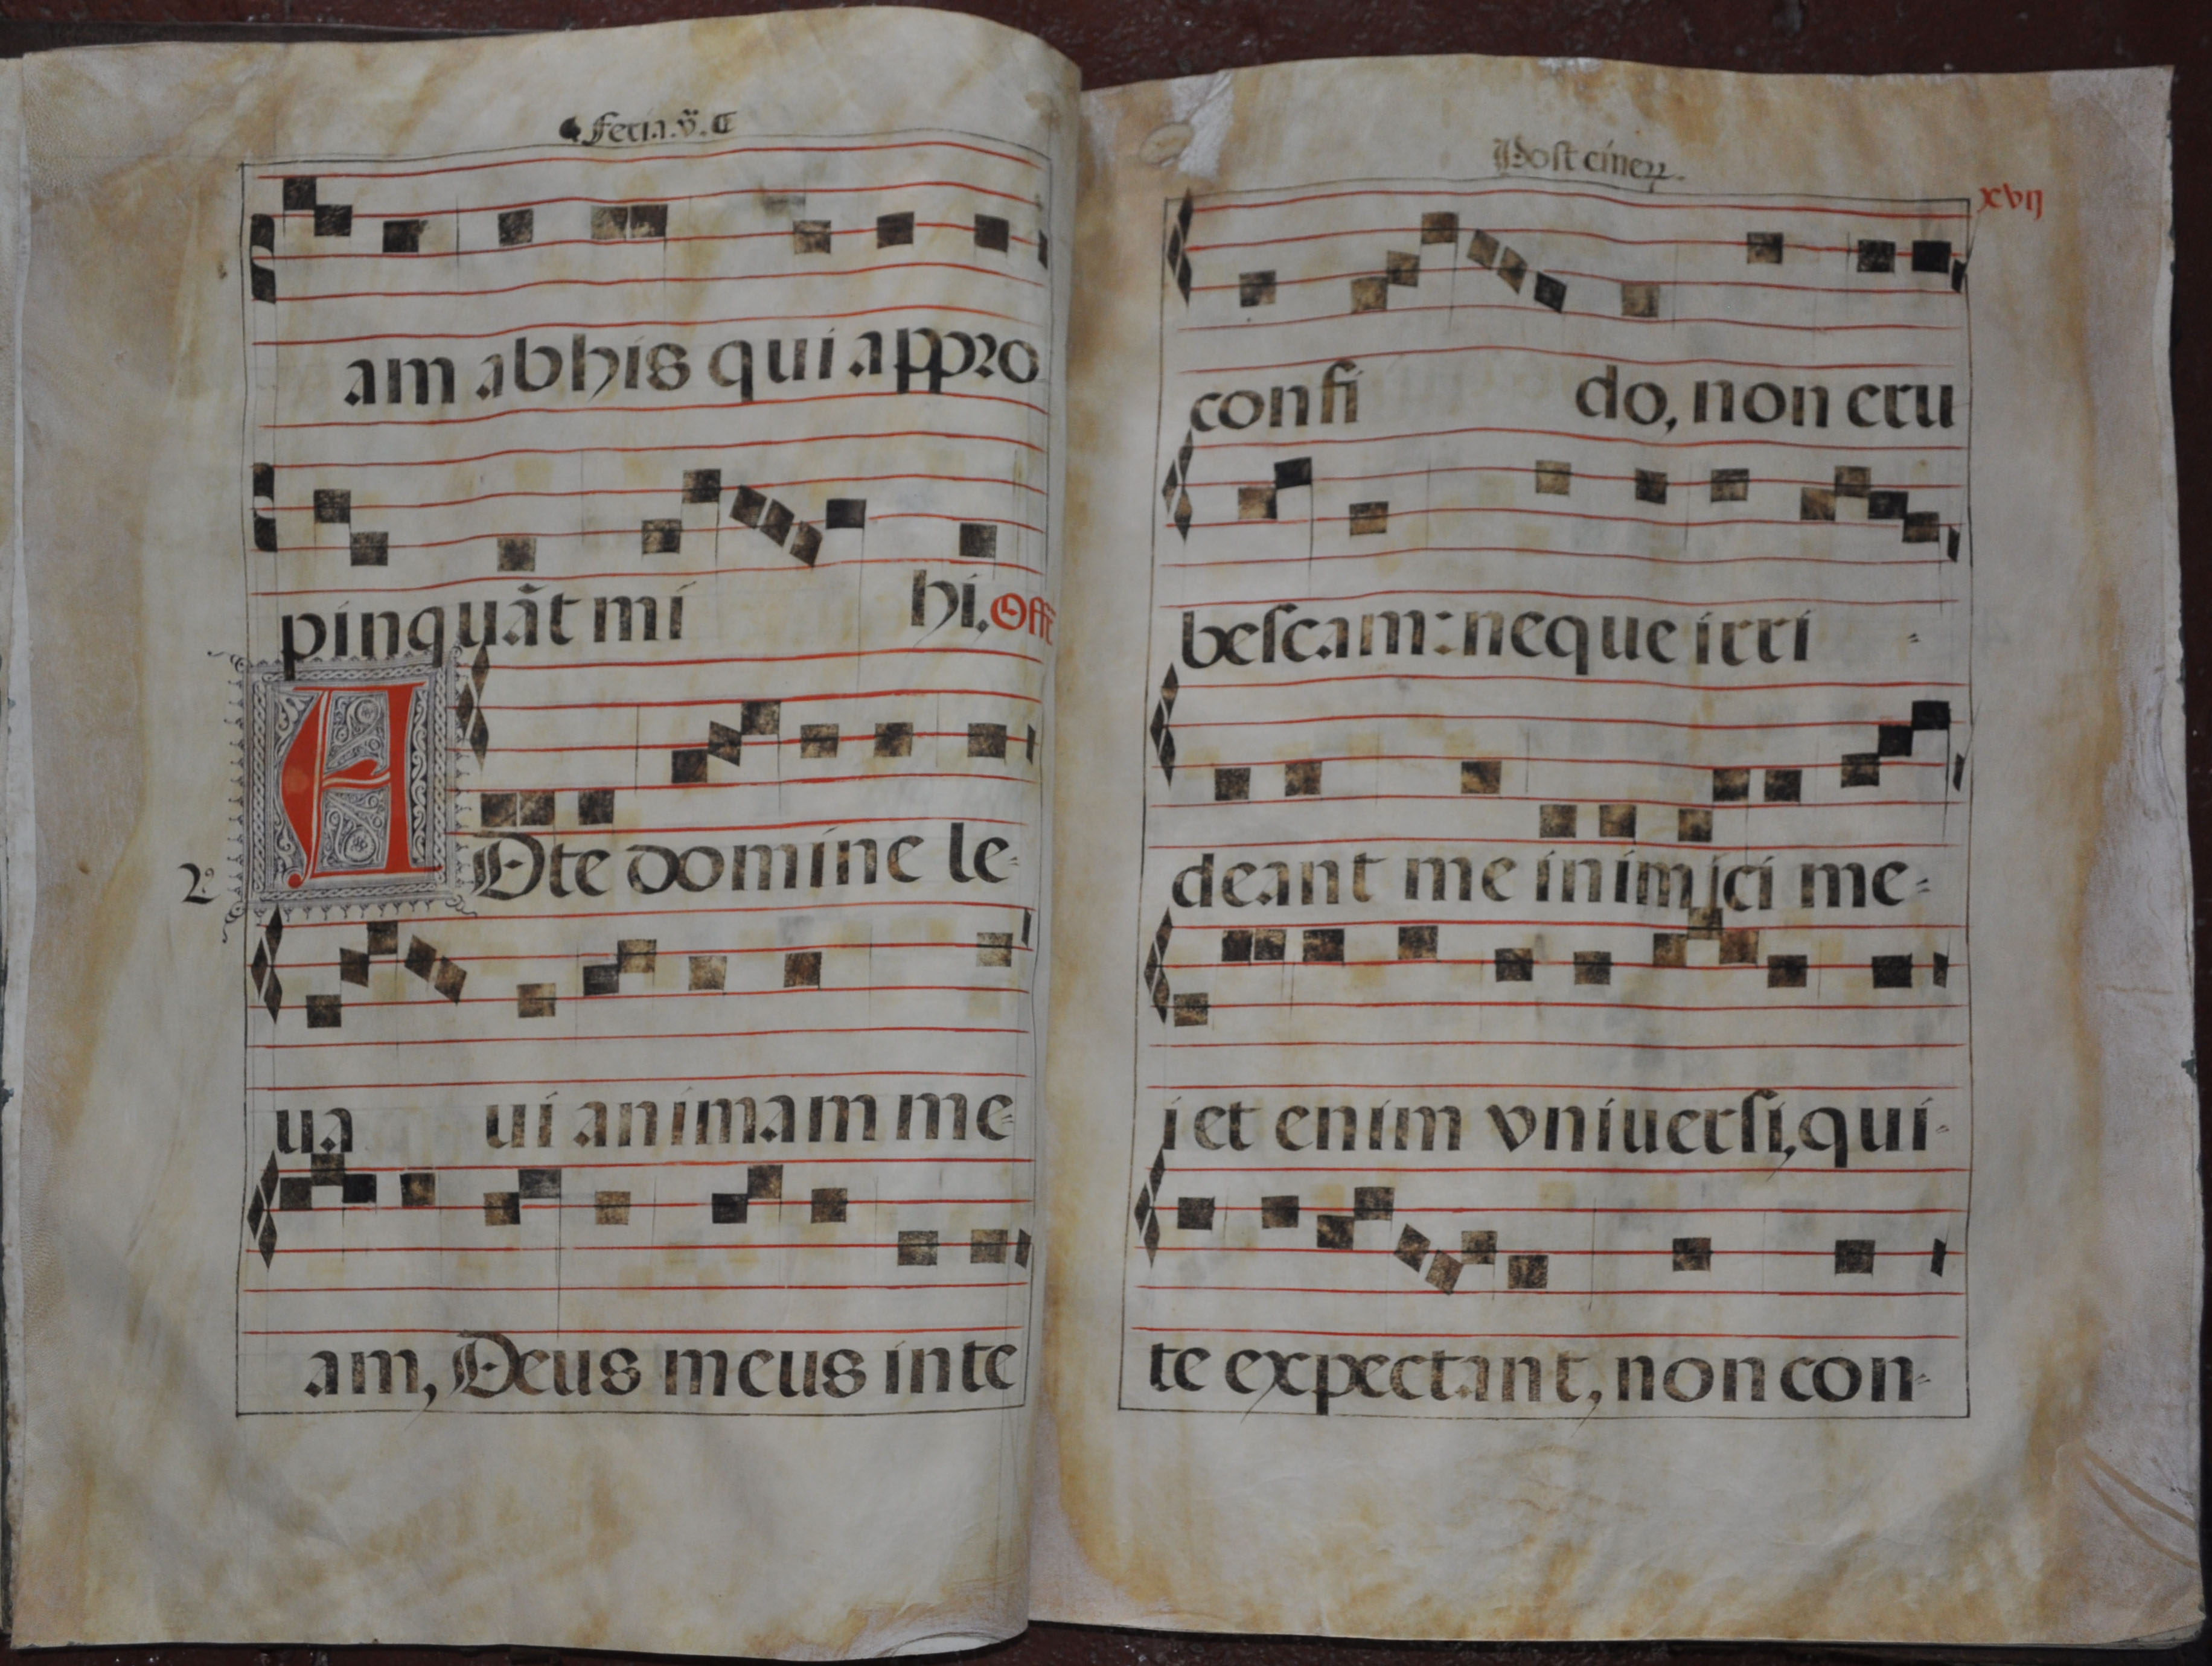 Feria .v.
am ab his qui appro
pinquãt mi hi. Offe
AD te domine le-
2.º
ua ui animam me-
am, Deus meus in te
Post cineꝝ.
xvij
confi do, non eru
bescam: neque irri -
deant me inimici me-
i et enim vniuersi, qui-
te expectant, non con-